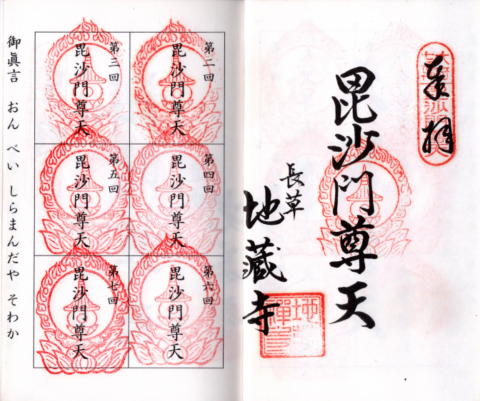 奉拝
毘沙門尊天
長草
地蔵寺
第二回
毘沙門尊天
第三回
毘沙門尊天
第四回
毘沙門尊天
第五回
毘沙門尊天
第六回
毘沙門尊天
第七回
毘沙門尊天
御眞言 おん べい しらまんだや そわか